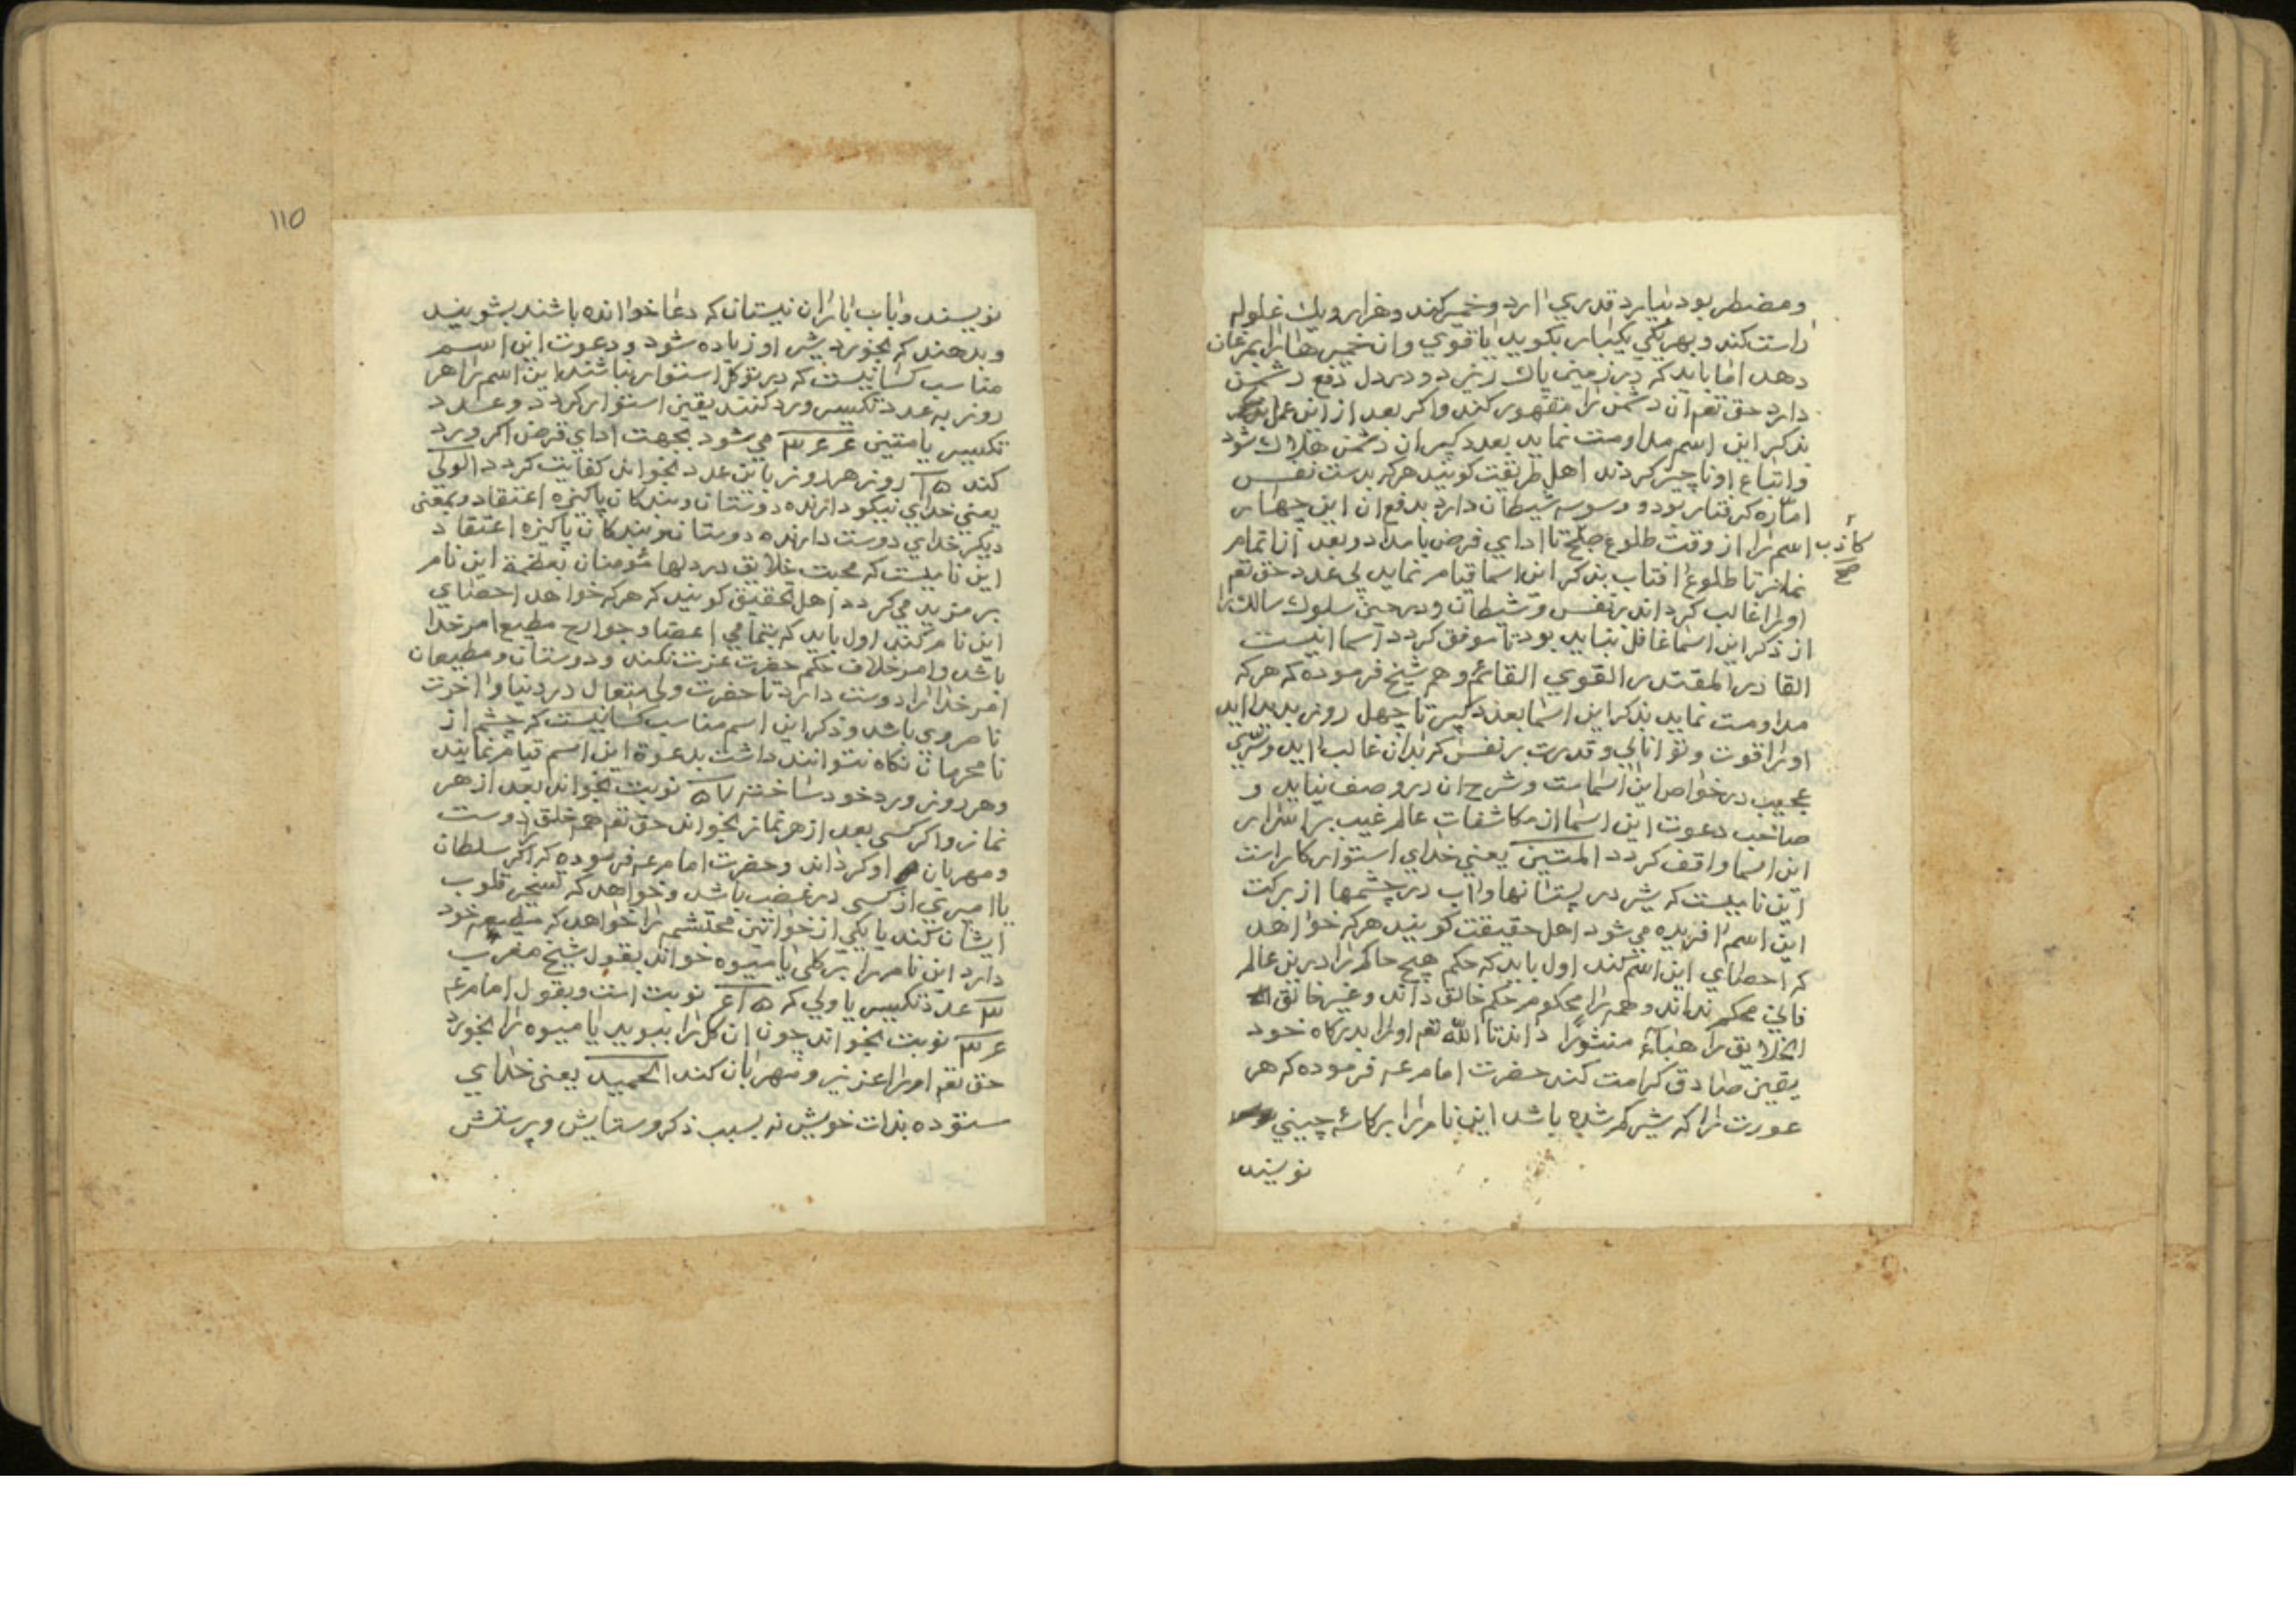 ومضطر بود بیارد قدری ارد وخمیر کند وهزار ویك غلوله
راست کند وبهر یکی یکبار بکوید یا قوي وان خمیرها را بمرغان
دهد اما باید که در زمین پاك ریزد ودر دل دفع دشمن
دارد حق تعم ان دشمن را مقهور کند واکر بعد از این عمل
بذکر این اسم مداومت نماید بعدد کبیر ان دشمن هلاك شود
واتباع او ناچیز کردند اهل طریقت کویند هر که بدست نفس
اماره کرفتار بود و وسوسه شیطان دارد بدفع ان این چهار
کاذب صح
اسم را از وقت طلوع صبح تا ادای فرض بامداد وبعد از اتمام
نماز تا طلوع افتاب بذکر این اسما قیام نماید بی عدد حق تعم
اورا غالب کرداند بر نفس وشیطان ودر حین سلوك سالك را
از ذکر این اسما غافل نباید بود تا موفق کردد اسما اینست
القادر المقتدر القوي القائم وهم شیخ فرموده که هر که
مداومت نماید بذکر این اسما بعدد کبیر تا چهل روز بدید اید
اورا قوت وتوانایی وقدرت بر نفس که بدان غالب اید وسری
عجیب در خواص این اسماست وشرح ان در وصف نیاید و
صاحب دعوت این اسما از مکاشفات عالم غیب بر اسرار
این اسما واقف کردد المتین یعنی خدای استوار کار است
این نامیست که شیر در پستانها واب در چشمها از برکت
این اسم افریده می شود اهل حقیقت کویند هر که خواهد
که احصای این اسم کند اول باید که حکم هیچ حاکم را در ین عالم
فانی محکم نداند وهمه را محکوم حکم خالق داند وغیر خالق
الخلایق را هباء منثورا داند تا الله تعم اورا بدرکاه خود
یقین صادق کرامت کند حضرت امام عم فرموده که هر
عورت را که شیر کم شده باشد این نام را بر کاسۀ چینی
نویسد
110
نویسند وباب باران نیستان که دعا خوانده باشند بشویند
وبدهند که بخورد شیر او زیاده شود ودعوت این اسم
مناسب کسانیست که در توکل استوار نباشند این اسم را هر
روز به عدد تکسیر ورد کنند یقین استوار کردد وعدد
تکسیر یا متین می شود بجهت ادای قرض اکر ورد
کند روز هر روز باین عدد بخواند کفایت کردد الولي
یعنی خدای نیکو دارنده دوستان وبندکان پاکیزه اعتقاد وبمعنی
دیکر خدای دوست دارنده دوستان وبندکان پاکیزه اعتقاد
این نامیست که محبت خلایق در دلها مؤمنان بعظمة این نام
بر مزید می کردد اهل تحقیق کویند که هر که خواهد احصای
این نام کند اول باید که بتمامی اعضا وجوارح مطیع امر خدا
باشد وامر خلاف حکم حضرت عزت نکند ودوستان ومطیعان
امر خدا را دوست دارد تا حضرت ولی متعال در دنیا واخرت
ناصر وی باشد وذکر این اسم مناسب کسانیست که چشم از
نامحرمان نکاه نتوانند داشت بدعوة این اسم قیام نمایند
وهر روز ورد خود ساختند نوبت بخواند بعد از هر
نماز واکر کسی بعد از هر نماز بخواند حق تعم همه خلق را دوست
ومهربان او کرداند وحضرت امام عم فرموده که اکر سلطان
یا امیری از کسی در غضب باشد وخواهد که تسخیر قلوب
ایشان کند یا یکی از خواتین محتشم را خواهد که مطیعه خود
دارد این نام را بر کلی یا میوه خواند بقول شیخ مغرب
عدد تکسیر یا ولی که نوبت است وبقول امام عم
نوبت بخواند چون ان کل را ببوید یا میوه را بخورد
حق تعم اورا عزیز ومهربان کند الحمید یعنی خدای
ستوده بذات خویش نه بسبب ذکر وستایش وپرستش